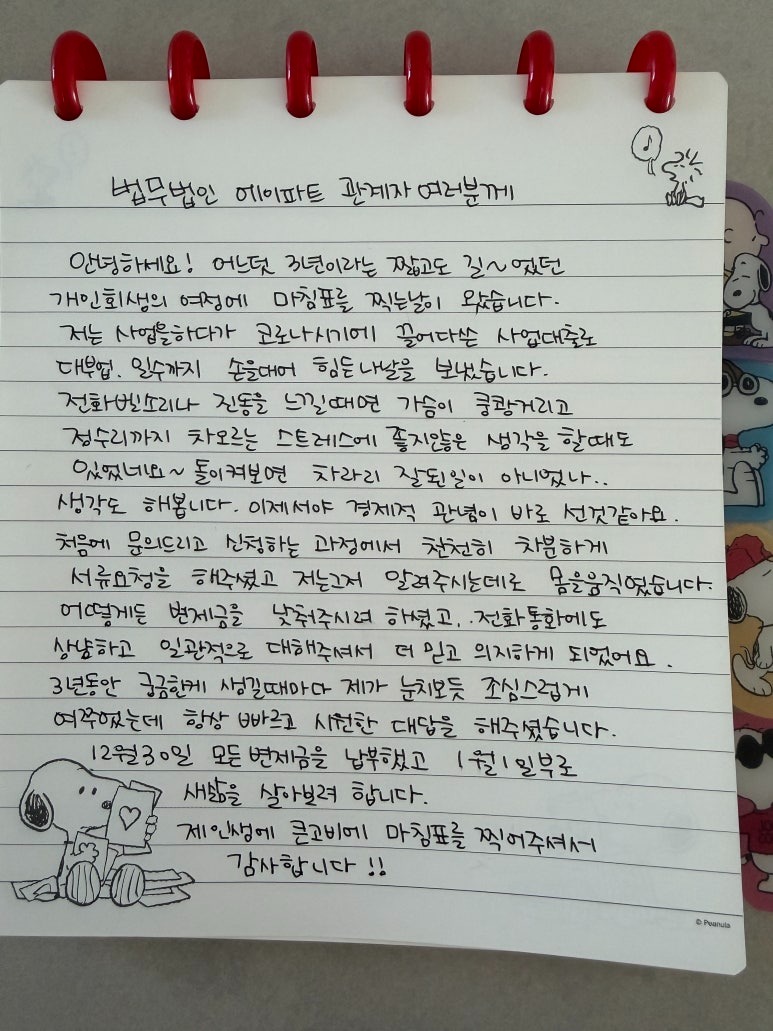 법무법인 에이파트 관계자 여러분께
안녕하세요! 어느덧 3년이라는 짧고도 길~었던
개인회생의 여정에 마침표를 찍는날이 왔습니다.
저는 사업을하다가 코로나시기에 끌어다쓴 사업대출로
대부업. 일수까지 손을대어 힘든나날을 보냈습니다.
전화벨소리나 진동을 느낄때면 가슴이 쿵쾅거리고
정수리까지 차오르는 스트레스에 좋지않은 생각을 할때도
있었네요~ 돌이켜보면 차라리 잘된일이 아니었나..
생각도 해봅니다. 이제서야 경제적 관념이 바로 선것같아요.
처음에 문의드리고 신청하는 과정에서 천천히 차분하게
서류요청을 해주셨고 저는그저 알려주시는데로 몸을움직였습니다.
어떻게든 변제금을 낮춰주시려 하셨고.. 전화통화에도
상냥하고 일관적으로 대해주셔서 더 믿고 의지하게 되었어요.
3년동안 궁금한게 생길때마다 제가 눈치보듯 조심스럽게
여쭈었는데 항상 빠르고 시원한 대답을 해주셨습니다.
12월30일 모든변제금을 납부했고 1월1일부로
새삶을 살아보려 합니다.
제인생에 큰고비에 마침표를 찍어주셔서
감사합니다!!
© Peanuts